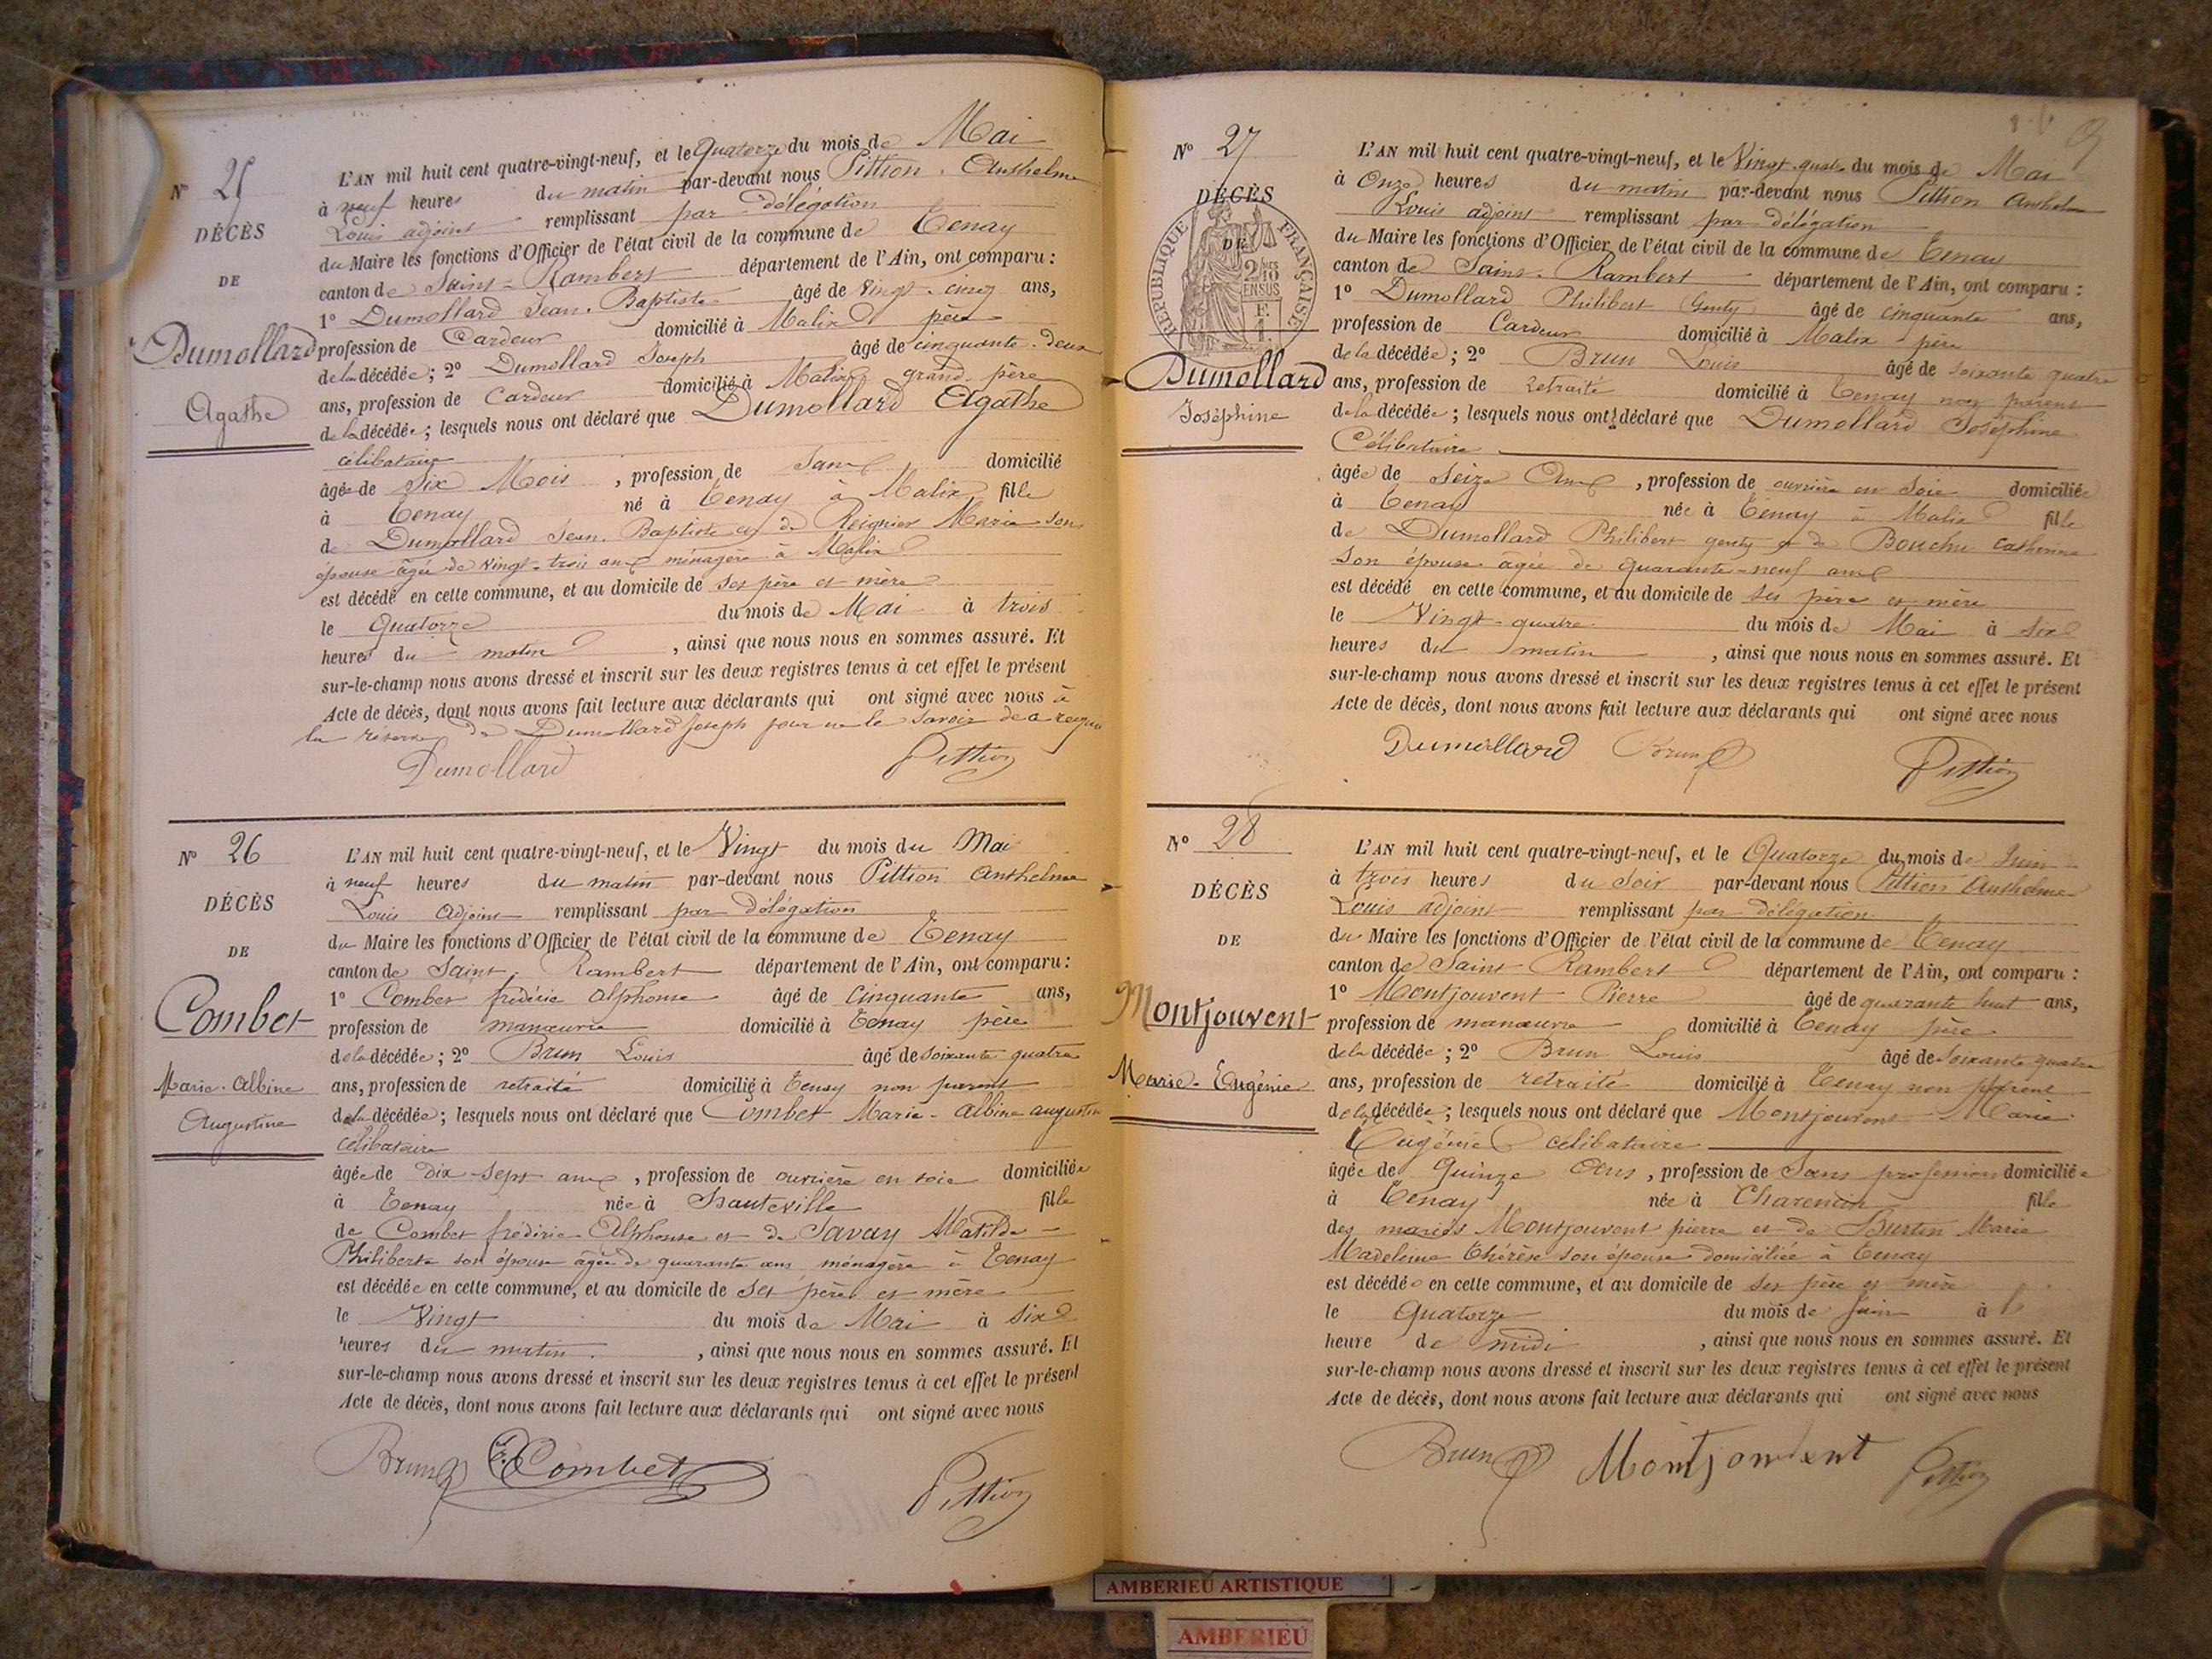 Nº 25
DÉCÈS
DE
Dumollard
Agathe
L'AN mil huit cent quatre-vingt-neuf, et le Quatorze du mois de Mai
à neuf heures du matin par-devant nous Pittion Anthelme
Louis adjoint remplissant par délégation
du Maire les fonctions d'Officier de l'état civil de la commune de Tenay
canton de Saint-Rambert département de l'Ain, ont comparu :
1º Dumollard Jean-Baptiste âgé de vingt-cinq ans,
profession de Cardeur domicilié à Malix père
de la décédée ; 2º Dumollard Joseph âgé de cinquante-deux
ans, profession de Cardeur domicilié à Malix grand-père
de la décédée ; lesquels nous ont déclaré que Dumollard Agathe
célibataire
âgée de Six Mois , profession de sans domicilié
à Tenay né à Tenay à Malix fille
de Dumollard Jean-Baptiste et de Reignier Marie son
épouse âgée de vingt-trois ans ménagère à Malix
est décédé en cette commune, et au domicile de ses père et mère
le Quatorze du mois de Mai à trois
heures du matin , ainsi que nous nous en sommes assuré. Et
sur-le-champ nous avons dressé et inscrit sur les deux registres tenus à cet effet le présent
Acte de décès, dont nous avons fait lecture aux déclarants qui ont signé avec nous à
la réserve de Dumollard Joseph pour ne le savoir de ce requis
Dumollard Pittion
Nº 26
DÉCÈS
DE
Combet
Marie-Albine
Augustine
L'AN mil huit cent quatre-vingt-neuf, et le Vingt du mois du Mai
à neuf heures du matin par-devant nous Pittion Anthelme
Louis Adjoint remplissant par délégation
du Maire les fonctions d'Officier de l'état civil de la commune de Tenay
canton de Saint-Rambert département de l'Ain, ont comparu :
1º Combet frédéric alphonse âgé de cinquante ans,
profession de manœuvre domicilié à Tenay père
de la décédée ; 2º Brun Louis âgé de soixante quatre
ans, profession de retraité domicilié à Tenay non parent
de la décédée ; lesquels nous ont déclaré que Combet Marie-Albine augustine
célibataire
âgée de dix-sept ans , profession de ouvrière en soie domiciliée
à Tenay née à Hauteville fille
de Combet frédéric Alphonse et de Savay Matilde
Philiberte son épouse âgée de quarante ans ménagère à Tenay
est décédée en cette commune, et au domicile de ses père et mère
le Vingt du mois de Mai à six
heures du matin , ainsi que nous nous en sommes assuré. Et
sur-le-champ nous avons dressé et inscrit sur les deux registres tenus à cet effet le présent
Acte de décès, dont nous avons fait lecture aux déclarants qui ont signé avec nous
Brun Combet Pittion
Nº 27
DÉCÈS
DE
RÉPUBLIQUE FRANÇAISE
2/10
EN SUS
Dumollard
Joséphine
L'AN mil huit cent quatre-vingt-neuf, et le Vingt-quatre du mois de Mai
à Onze heures du matin par-devant nous Pittion Anthelme
Louis adjoint remplissant par délégation
du Maire les fonctions d'Officier de l'état civil de la commune de Tenay
canton de Saint-Rambert département de l'Ain, ont comparu :
1º Dumollard Philibert Genty âgé de cinquante ans,
profession de Cardeur domicilié à Malix père
de la décédée ; 2º Brun Louis âgé de soixante quatre
ans, profession de retraité domicilié à Tenay non parent
de la décédée ; lesquels nous ont déclaré que Dumollard Joséphine
Célibataire
âgée de seize Ans , profession de ouvrière en soie domiciliée
à Tenay née à Tenay à Malix fille
de Dumollard Philibert genty et de Bouchu Catherine
son épouse âgée de quarante-neuf ans
est décédé en cette commune, et au domicile de ses père et mère
le Vingt-quatre du mois de Mai à six
heures du matin , ainsi que nous nous en sommes assuré. Et
sur-le-champ nous avons dressé et inscrit sur les deux registres tenus à cet effet le présent
Acte de décès, dont nous avons fait lecture aux déclarants qui ont signé avec nous
Dumollard Brun Pittion
Nº 28
DÉCÈS
DE
Montjouvent
Marie-Eugénie
L'AN mil huit cent quatre-vingt-neuf, et le Quatorze du mois de Juin
à trois heures du Soir par-devant nous Pittion Anthelme
Louis adjoint remplissant par délégation
du Maire les fonctions d'Officier de l'état civil de la commune de Tenay
canton de Saint-Rambert département de l'Ain, ont comparu :
1º Montjouvent Pierre âgé de quarante huit ans,
profession de manœuvre domicilié à Tenay père
de la décédée ; 2º Brun Louis âgé de soixante quatre
ans, profession de retraité domicilié à Tenay non parent
de la décédée ; lesquels nous ont déclaré que Montjouvent Marie
Eugénie célibataire
âgée de Quinze Ans , profession de Sans profession domiciliée
à Tenay née à fille
des mariés Montjouvent pierre et de Burtin Marie
Madeleine Thérèse son épouse domiciliée à Tenay
est décédée en cette commune, et au domicile de ses père et mère
le Quatorze du mois de Juin à l
heure de midi , ainsi que nous nous en sommes assuré. Et
sur-le-champ nous avons dressé et inscrit sur les deux registres tenus à cet effet le présent
Acte de décès, dont nous avons fait lecture aux déclarants qui ont signé avec nous
Brun Montjouvent Pittion
AMBERIEU ARTISTIQUE
AMBERIEU